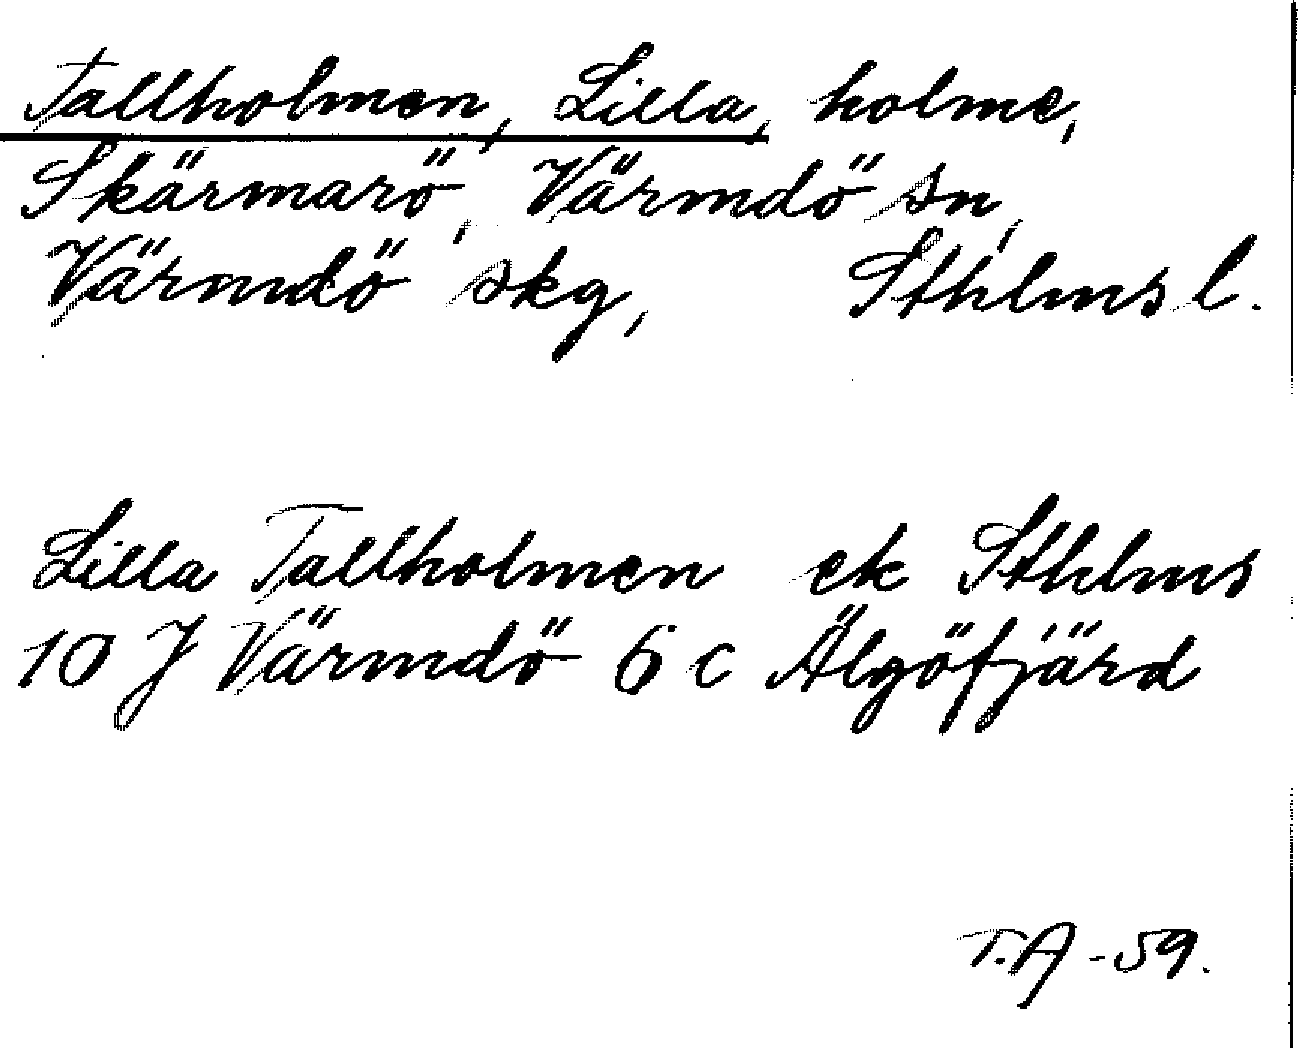 Tallholmen, Lilla, holme,
Skärmarö, Värmdö sn,
Värmdö skg, Sthlms l.
Lilla Tallholmen ek Sthlms
10 J Värmdö 6 c Älgöfjärd
T.A -59.